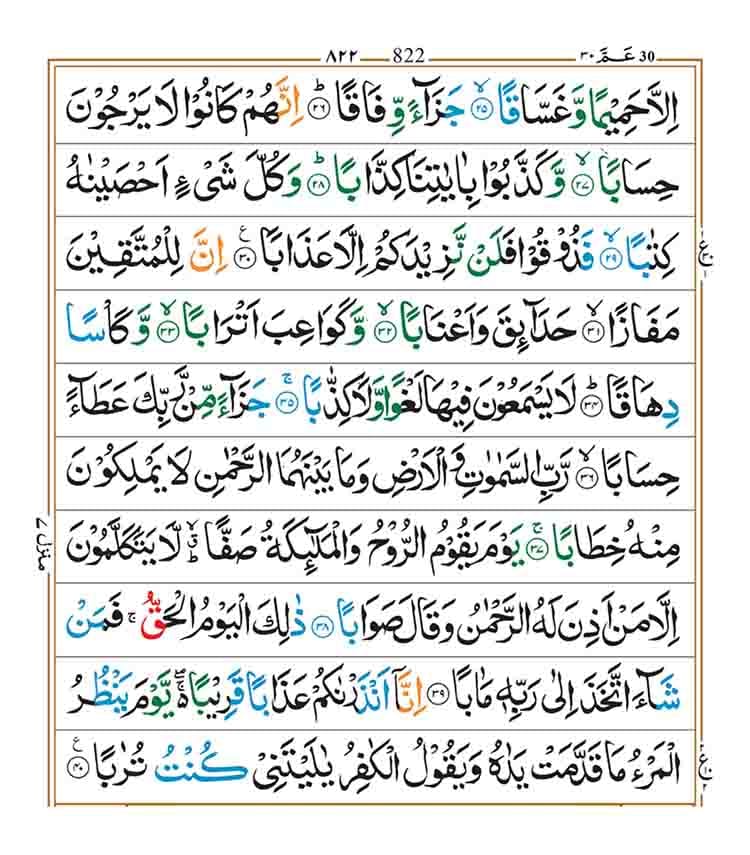 عَـمَّ ٣٠ 30 822 ٨٢٢
اِلَّا حَمِيْمًا وَّغَسَّاقًا ۙ‏﴿۲۵﴾ جَزَآءً وِّفَاقًا ؕ‏﴿۲۶﴾ اِنَّهُمْ كَانُوْا لَا يَرْجُوْنَ
حِسَابًا ۙ‏﴿۲۷﴾ وَّكَذَّبُوْا بِاٰيٰتِنَا كِذَّابًا ؕ‏﴿۲۸﴾ وَكُلَّ شَيْءٍ اَحْصَيْنٰهُ
كِتٰبًا ۙ‏﴿۲۹﴾ فَذُوْقُوْا فَلَنْ نَّزِيْدَكُمْ اِلَّا عَذَابًا ﴿۳۰﴾ ع اِنَّ لِلْمُتَّقِيْنَ
مَفَازًا ۙ‏﴿۳۱﴾ حَدَآئِقَ وَاَعْنَابًا ۙ‏﴿۳۲﴾ وَّكَوَاعِبَ اَتْرَابًا ۙ‏﴿۳۳﴾ وَّكَاْسًا
دِهَاقًا ؕ‏﴿۳۴﴾ لَا يَسْمَعُوْنَ فِيْهَا لَغْوًا وَّلَا كِذّٰبًا ۚ‏﴿۳۵﴾ جَزَآءً مِّنْ رَّبِّكَ عَطَآءً
حِسَابًا ۙ‏﴿۳۶﴾ رَّبِّ السَّمٰوٰتِ وَالْاَرْضِ وَمَا بَيْنَهُمَا الرَّحْمٰنِ لَا يَمْلِكُوْنَ
مِنْهُ خِطَابًا ۚ‏﴿۳۷﴾ يَوْمَ يَقُوْمُ الرُّوْحُ وَالْمَلٰٓئِكَةُ صَفًّا ۙۗ لَّا يَتَكَلَّمُوْنَ
اِلَّا مَنْ اَذِنَ لَهُ الرَّحْمٰنُ وَقَالَ صَوَابًا ﴿۳۸﴾ ذٰلِكَ الْيَوْمُ الْحَقُّ ۚ فَمَنْ
شَآءَ اتَّخَذَ اِلٰى رَبِّهٖ مَاٰبًا ﴿۳۹﴾ اِنَّآ اَنْذَرْنٰكُمْ عَذَابًا قَرِيْبًا ۬ۚۖ يَّوْمَ يَنْظُرُ
الْمَرْءُ مَا قَدَّمَتْ يَدٰهُ وَيَقُوْلُ الْكٰفِرُ يٰلَيْتَنِيْ كُنْتُ تُرٰبًا ﴿۴۰﴾ ع
منزل ٧